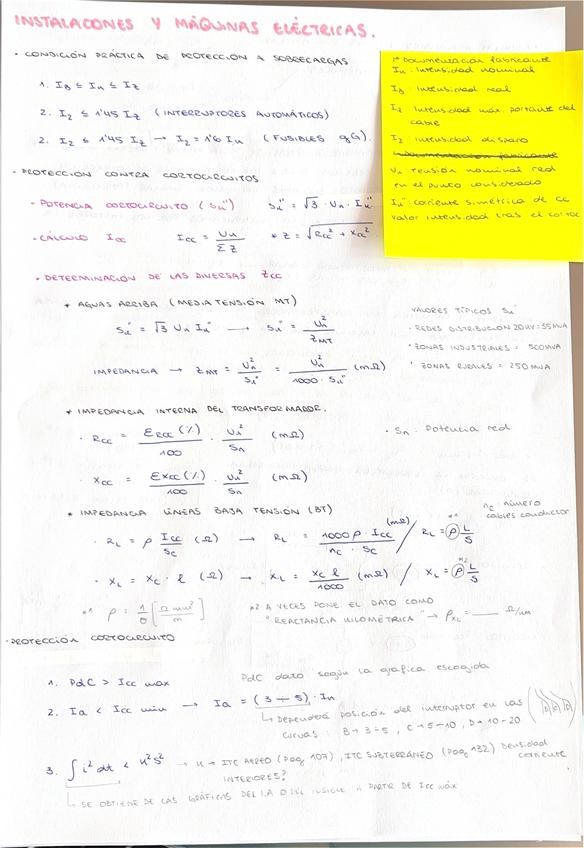 INSTALACIONES Y MÁQUINAS ELÉCTRICAS.
· CONDICIÓN PRÁCTICA DE PROTECCIÓN A SOBRECARGAS
1. I_B ≤ I_n ≤ I_Z
2. I_2 ≤ 1'45 I_Z (INTERRUPTORES AUTOMÁTICOS)
2. I_2 ≤ 1'45 I_Z → I_2 = 1'6 I_n (FUSIBLES gG).
1* Documentación fabricante
I_n. Intensidad nominal
I_B. Intensidad real
I_Z Intensidad máx. portante del cable
I_2 intensidad disparo
U_n tensión nominal red
en el punto considerado
I_k'' corriente simétrica de cc
valor intensidad tras el cortoc
· PROTECCIÓN CONTRA CORTOCIRCUITOS
· POTENCIA CORTOCIRCUITO (S_k'') S_k'' = √3 · U_n · I_k''
· CÁLCULO I_cc I_cc = U_n / Σ Z * Z = √(R_cc² + X_cc²)
· DETERMINACIÓN DE LAS DIVERSAS Z_cc
* AGUAS ARRIBA (MEDIA TENSIÓN MT)
S_k'' = √3 U_n I_k'' → S_k'' = U_n² / Z_MT
IMPEDANCIA → Z_MT = U_n² / S_k'' = U_n² / 1000 · S_k'' (mΩ)
VALORES TÍPICOS S_k''
· REDES DISTRIBUCIÓN 20kV = 35MVA
· ZONAS INDUSTRIALES = 500MVA
· ZONAS RURALES = 250MVA
* IMPEDANCIA INTERNA DEL TRANSFORMADOR.
· R_CC = E_RCC (%) / 100 · U_n² / S_n (mΩ)
· S_n. Potencia red
· X_CC = E_XCC (%) / 100 · U_n² / S_n (mΩ)
* IMPEDANCIA LÍNEAS BAJA TENSIÓN (BT)
n_c número
cables conductor
· R_L = ρ I_cc / S_c (Ω) → R_L = 1000 ρ · I_cc / n_c · S_c (mΩ) / R_L = ρ L/S *1
· X_L = X_C · l (Ω) → X_L = X_C l / 1000 (mΩ) / X_L = ρ L/S *2
*1 ρ = 1/σ [Ω mm² / m]
*2 A VECES PONE EL DATO COMO
"REACTANCIA KILOMÉTRICA" → ρ_XL = ___ Ω/km
· PROTECCIÓN CORTOCIRCUITO
1. PdC > Icc máx PdC dato según la gráfica escogida
2. Ia < Icc mín → Ia = (3 ÷ 5) · In
↳ Dependerá posición del interruptor en las
curvas: B → 3÷5, C → 5-10, D → 10-20
3. ∫ i² dt < K²S² → K → ITC AEREO (Pag 107), ITC SUBTERRÁNEO (Pag 132) Densidad corriente
INTERIORES?
↳ SE OBTIENE DE LAS GRÁFICAS DEL I.A O DEL FUSIBLE A PARTIR DE Icc máx